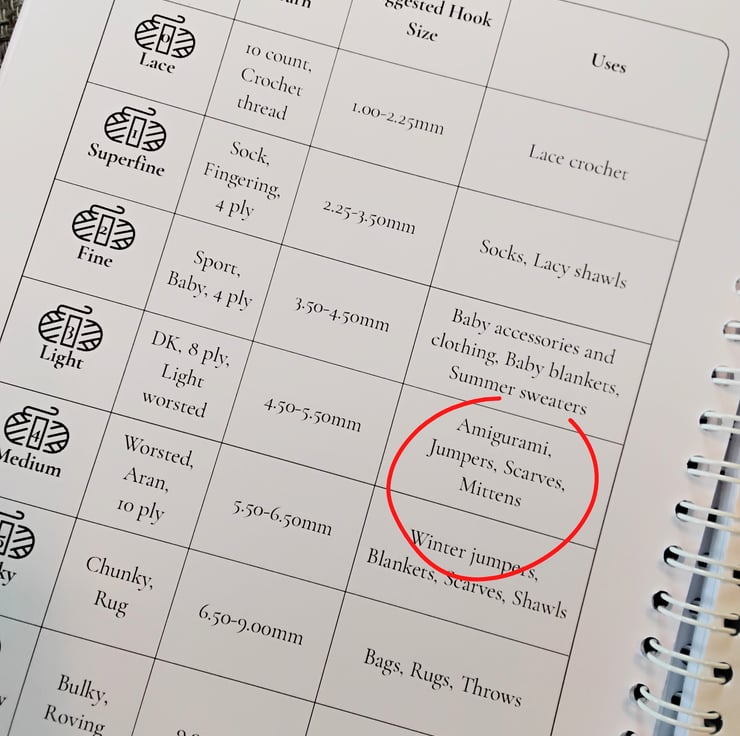 ggested Hook
Size
Uses
0
Lace
10 count,
Crochet
thread
1.00-2.25mm
Lace crochet
1
Superfine
Sock,
Fingering,
4 ply
2.25-3.50mm
Socks, Lacy shawls
2
Fine
Sport,
Baby, 4 ply
3.50-4.50mm
Baby accessories and
clothing, Baby blankets,
Summer sweaters
3
Light
DK, 8 ply,
Light
worsted
4.50-5.50mm
Amigurami,
Jumpers, Scarves,
Mittens
4
Medium
Worsted,
Aran,
10 ply
5.50-6.50mm
Winter jumpers,
Blankets, Scarves, Shawls
5
ky
Chunky,
Rug
6.50-9.00mm
Bags, Rugs, Throws
Bulky,
Roving